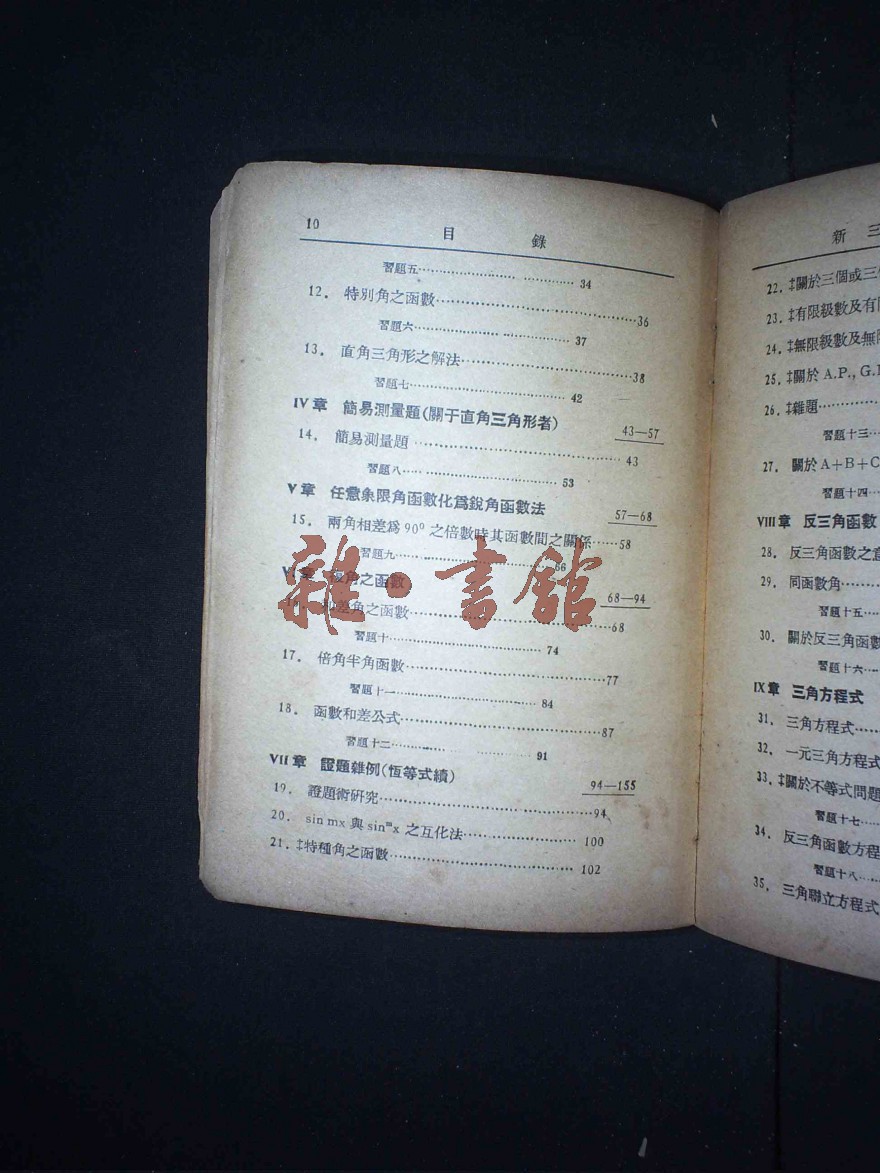 10 目 錄
習題五 34
12. 特別角之函數 36
習題六 37
13. 直角三角形之解法 38
習題七 42
IV 章 簡易測量題(關于直角三角形者) 43—57
14. 簡易測量題 43
習題八 53
V 章 任意象限角函數化爲銳角函數法 57—68
15. 兩角相差爲 90° 之倍數時其函數間之關係 58
習題九 66
章 角之函數 68—94
差角之函數 68
習題十 74
17. 倍角半角函數 77
習題十一 84
18. 函數和差公式 87
習題十二 91
VII 章 證題雜例(恆等式續) 94—155
19. 證題術研究 94
20. sin mx 與 sinᵐx 之互化法 100
21. ‡特種角之函數 102
雜·書館
新 三
22. ‡關於三個或三
23. ‡有限級數及有
24. ‡無限級數及無
25. ‡關於 A.P., G.
26. ‡雜題
習題十三
27. 關於 A+B+C
習題十四
VIII 章 反三角函數
28. 反三角函數之
29. 同函數角
習題十五
30. 關於反三角函數
習題十六
IX 章 三角方程式
31. 三角方程式
32. 一元三角方程式
33. ‡關於不等式問題
習題十七
34. 反三角函數方程
習題十八
35. 三角聯立方程式